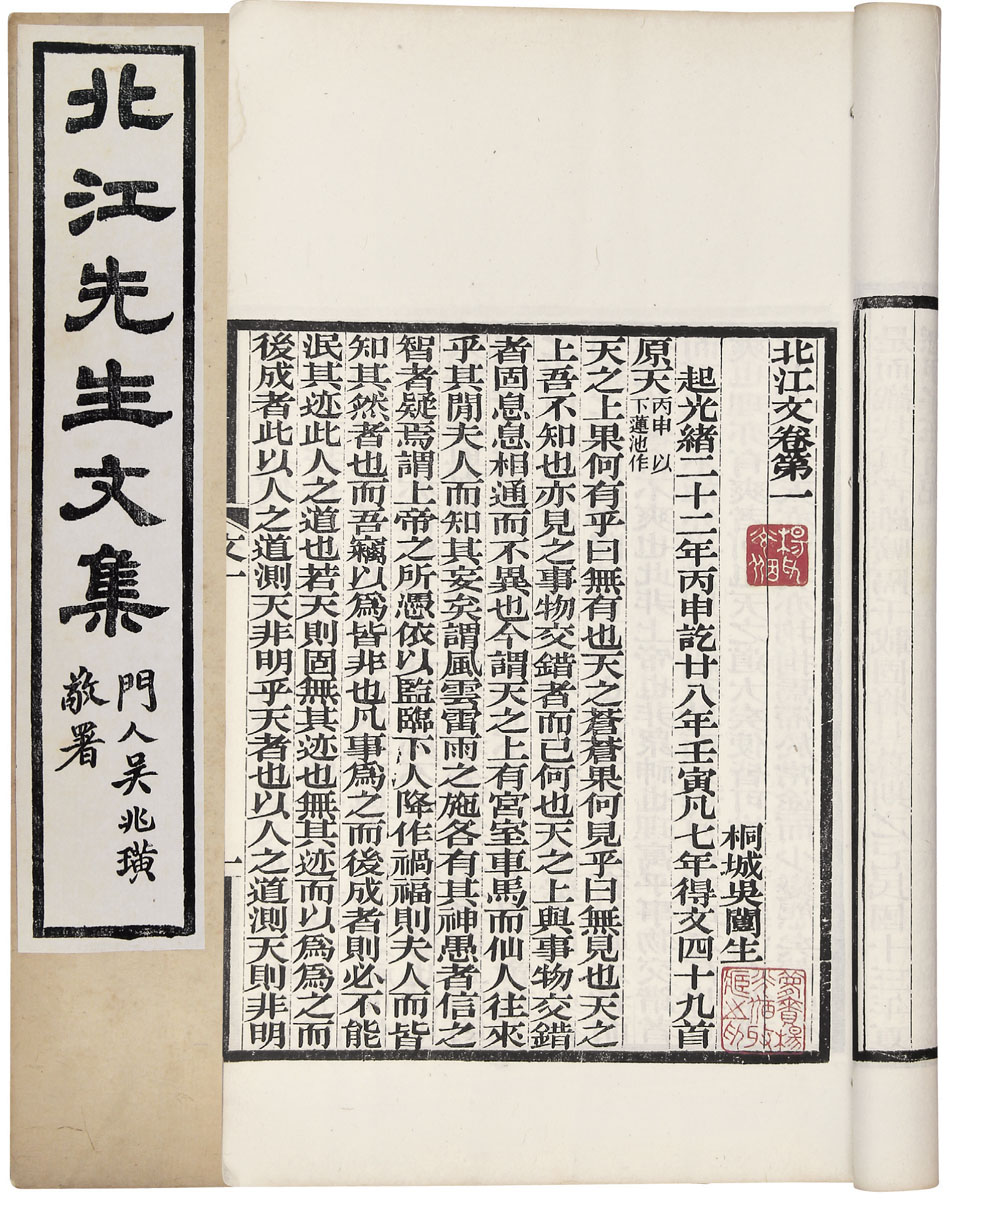 北江先生文集
門人吳兆璜
敬署
北江文卷第一
桐城吳闓生
起光緒二十二年丙申訖廿八年壬寅凡七年得文四十九首
原天丙申以下蓮池作
天之上果何有乎曰無有也天之蒼蒼果何見乎曰無見也天之
上吾不知也亦見之事物交錯者而已何也天之上與事物交錯
者固息息相通而不異也今謂天之上有宮室車馬而仙人往來
乎其閒夫人而知其妄矣謂風雲雷雨之施各有其神愚者信之
智者疑焉謂上帝之所憑依以監臨下人降作禍福則夫人而皆
知其然者也而吾竊以為皆非也凡事為之而後成者則必不能
泯其迹此人之道也若天則固無其迹也無其迹而以為為之而
後成者此以人之道測天非明乎天者也以人之道測天則非明
文一
一